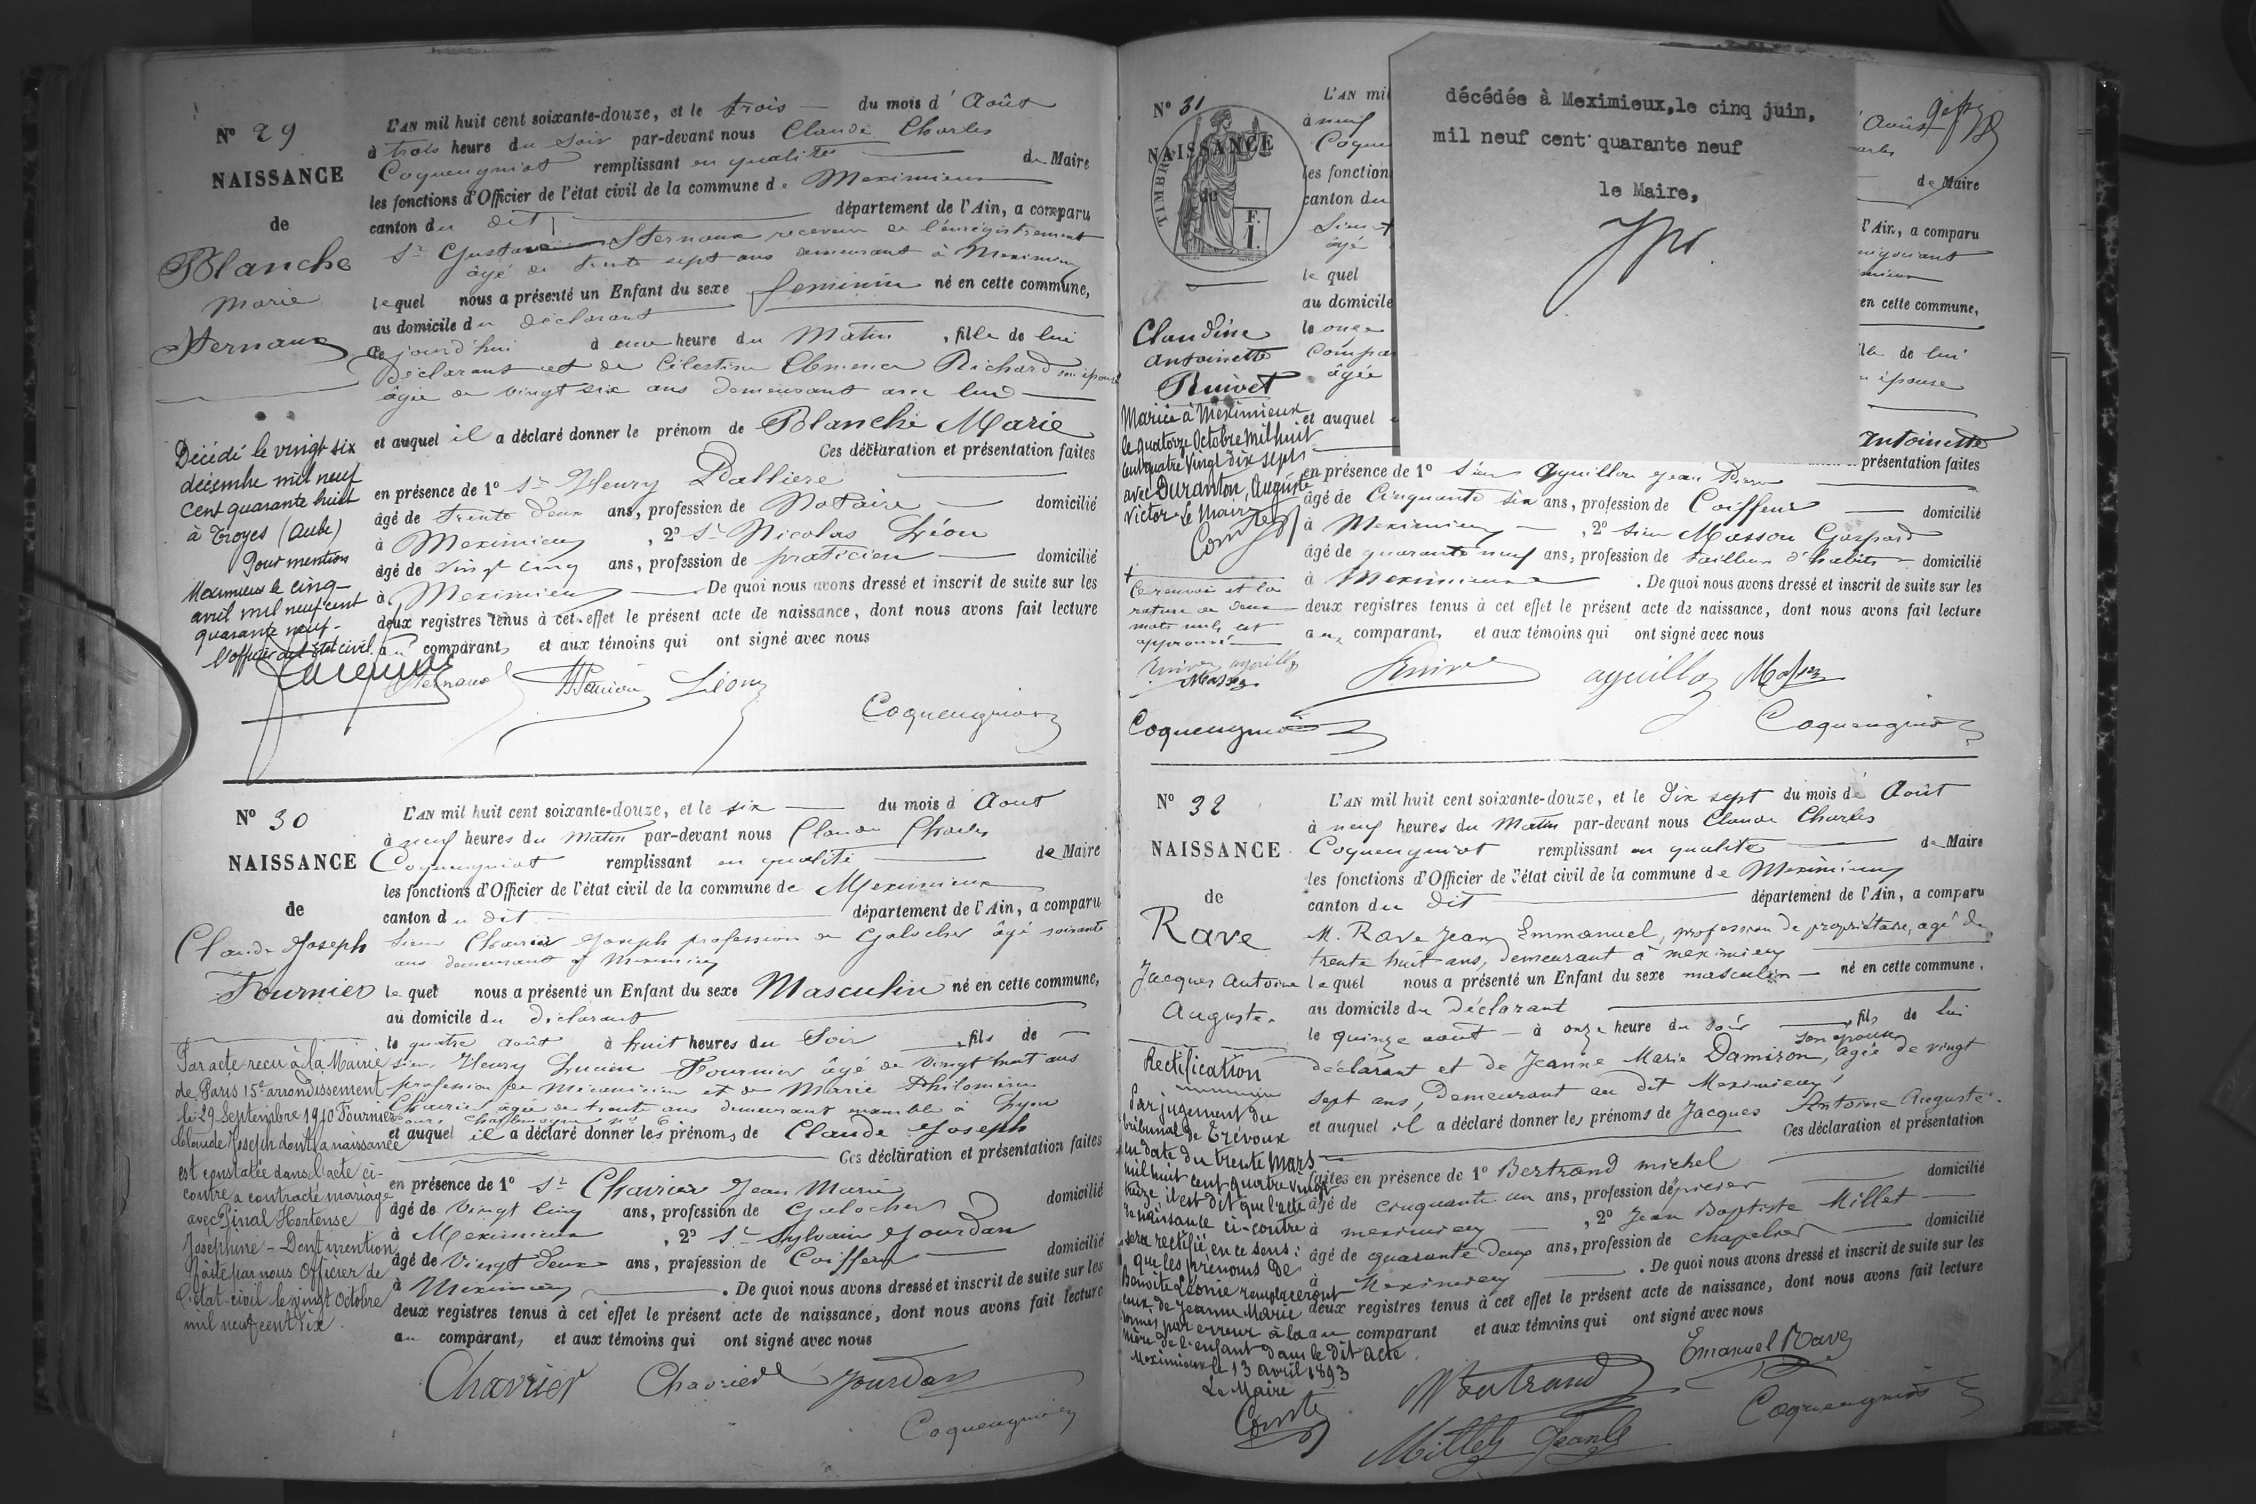 N° 29
NAISSANCE
de
Blanche
Marie
Sternaux
Décédé le vingt six
décembre mil neuf
cent quarante huit
à Troyes (Aube)
Pour mention
Meximieux le cinq
avril mil neuf cent
quarante neuf.
L'officier de l'état civil
L'AN mil huit cent soixante-douze, et le trois du mois d' Août
à trois heure du soir par-devant nous Claude Charles
Coquengniot remplissant en qualité de Maire
les fonctions d'Officier de l'état civil de la commune de Meximieux
canton du dit département de l'Ain, a comparu
Sr Gustave Sternaux receveur de l'enregistrement
âgé de trente sept ans demeurant à Meximieux
lequel nous a présenté un Enfant du sexe feminin né en cette commune,
au domicile du déclarant
ce jourd'hui à une heure du Matin, fille de lui
déclarant et de Célestine Clemence Richard son épouse
âgée de vingt six ans demeurant avec lui
et auquel il a déclaré donner le prénom de Blanche Marie
Ces déclaration et présentation faites
en présence de 1° Sr Henry
âgé de trente deux ans, profession de Notaire domicilié
à Meximieux, 2° Sr Nicolas Léon
âgé de vingt cinq ans, profession de praticien domicilié
à Meximieux De quoi nous avons dressé et inscrit de suite sur les
deux registres tenus à cet effet le présent acte de naissance, dont nous avons fait lecture
au comparant, et aux témoins qui ont signé avec nous
Sternaux Léon
Coquengniot
N° 30
NAISSANCE
de
Claude Joseph
Fournier
Par acte reçu à la Mairie
de Paris 15e arrondissement
le 29 Septembre 1910 Fournier
Claude Joseph dont la naissance
est constatée dans l'acte ci-
contre a contracté mariage
avec Pinal Hortense
Joséphine - Dont mention
faite par nous Officier de
l'état-civil le vingt Octobre
mil neuf cent dix.
L'AN mil huit cent soixante-douze, et le six du mois d Aout
à neuf heures du matin par-devant nous Claude Charles
Coquengniot remplissant en qualité de Maire
les fonctions d'Officier de l'état civil de la commune de Meximieux
canton du dit département de l'Ain, a comparu
Sieur Chavrier Joseph profession de Galocher âgé soixante
ans demeurant à Meximieux
lequel nous a présenté un Enfant du sexe Masculin né en cette commune,
au domicile du déclarant
le quatre août à huit heures du Soir, fils de
sieur Henry Lucien Fournier âgé de vingt huit ans
profession de Mécanicien et de Marie Philomène
Chavrier âgée de trente ans demeurant ensemble à Lyon
cours Charlemagne n° 6
et auquel il a déclaré donner les prénoms de Claude Joseph
Ces déclaration et présentation faites
en présence de 1° Sr Chavrier Jean Marie
âgé de vingt cinq ans, profession de Galocher domicilié
à Meximieux, 2° Sr Sylvain Jourdan
âgé de vingt deux ans, profession de Coiffeur domicilié
à Meximieux. De quoi nous avons dressé et inscrit de suite sur les
deux registres tenus à cet effet le présent acte de naissance, dont nous avons fait lecture
au comparant, et aux témoins qui ont signé avec nous
Chavrier Chavrier Jourdan
Coquengniot
N° 31
NAISSANCE
de
TIMBRE
F.
I.
Claudine
Antoinette
Ruivet
Mariée à Meximieux
le quatorze Octobre mil huit
cent quatre vingt dix sept
avec Duranton, Auguste
Victor Le Maire
Comte
Ce renvoi et la
rature de deux
mots nuls est
approuvé
Coquengniot
L'AN mil
à neuf
Coque
les fonction
canton du
Sieur
âgé
le quel
au domicile
le onze
compa
âgée
et auquel
décédée à Meximieux,le cinq juin,
mil neuf cent quarante neuf
le Maire,
Août
de Maire
l'Ain, a comparu
négociant
en cette commune,
lle de lui
épouse
Antoinette
présentation faites
en présence de 1° Sieur Aguillon Jean Pierre
âgé de Cinquante six ans, profession de Coiffeur domicilié
à Meximieux, 2° Sieur Masson Gaspard
âgé de quarante neuf ans, profession de tailleur d'habits domicilié
à Meximieux. De quoi nous avons dressé et inscrit de suite sur les
deux registres tenus à cet effet le présent acte de naissance, dont nous avons fait lecture
aux comparant, et aux témoins qui ont signé avec nous
Ruivet aguillon Masson
Coquengniot
N° 32
NAISSANCE
de
Rave
Jacques Antoine
Auguste.
Rectification
Par jugement du
tribunal de Trévoux
en date du trente Mars
mil huit cent quatre vingt
treize il est dit que l'acte
de naissance ci-contre
sera rectifié en ce sens:
que les prénoms de
Benoite Léonie remplaceront
ceux de Jeanne Marie
donnés par erreur à la
mère de l'enfant dans le dit acte.
Meximieux le 13 avril 1893
Le Maire
Comte
L'AN mil huit cent soixante-douze, et le dix sept du mois d Août
à neuf heures du Matin par-devant nous Claude Charles
Coquengniot remplissant en qualité de Maire
les fonctions d'Officier de l'état civil de la commune de Meximieux
canton du dit département de l'Ain, a comparu
M. Rave Jean Emmanuel, profession de propriétaire, agé de
trente huit ans, demeurant à meximieux
lequel nous a présenté un Enfant du sexe masculin né en cette commune,
au domicile du déclarant
le quinze aout à onze heure du soir, fils de lui
déclarant et de Jeanne Marie Damiron, son épouse agée de vingt
sept ans, Demeurant au dit Meximieux
et auquel il a déclaré donner les prénoms de Jacques Antoine Auguste.
Ces déclaration et présentation
faites en présence de 1° Bertrand michel domicilié
âgé de cinquante un ans, profession d'épicier
à meximieux, 2° Jean Baptiste Millet
âgé de quarante deux ans, profession de chapelier domicilié
à Meximieux. De quoi nous avons dressé et inscrit de suite sur les
deux registres tenus à cet effet le présent acte de naissance, dont nous avons fait lecture
au comparant et aux témoins qui ont signé avec nous
Emanuel Rave
Bertrand
Coquengniot
Millet